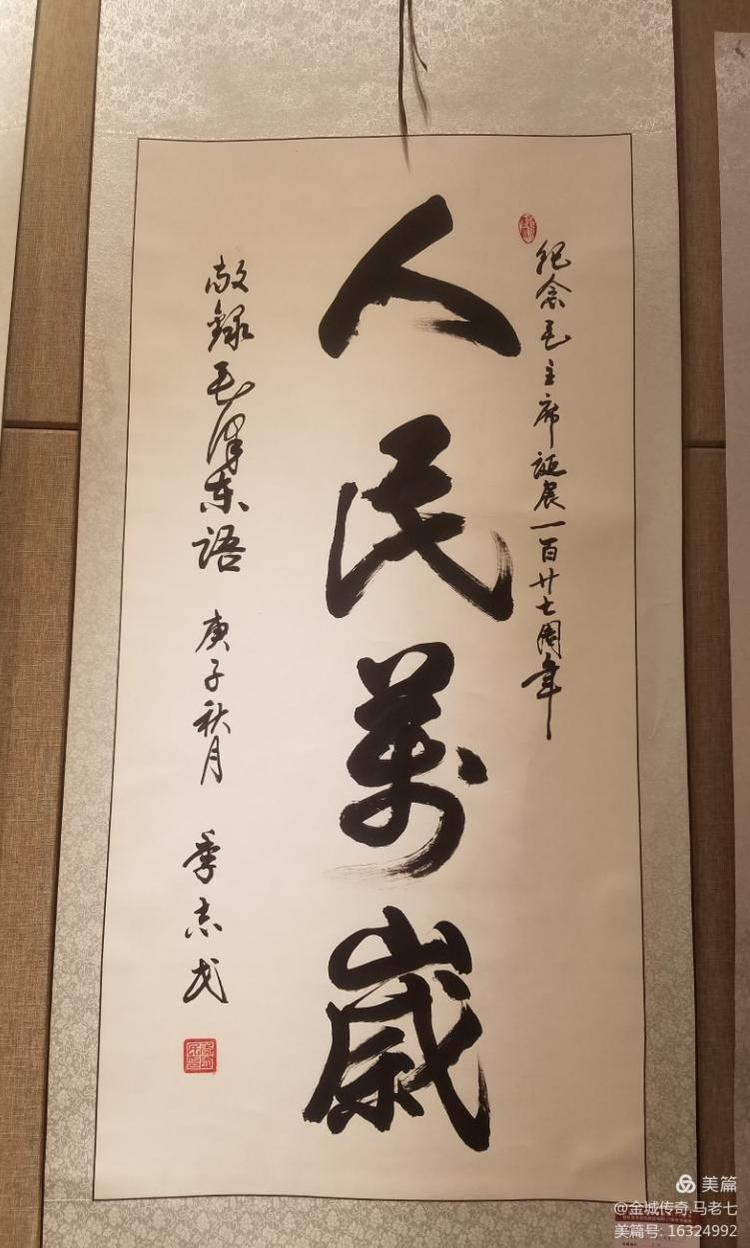 紀念毛主席誕辰一百廿七周年
人民萬歲
敬錄毛澤東語 庚子秋月 季志戈
美篇
@金城传奇.马老七
美篇号: 16324992